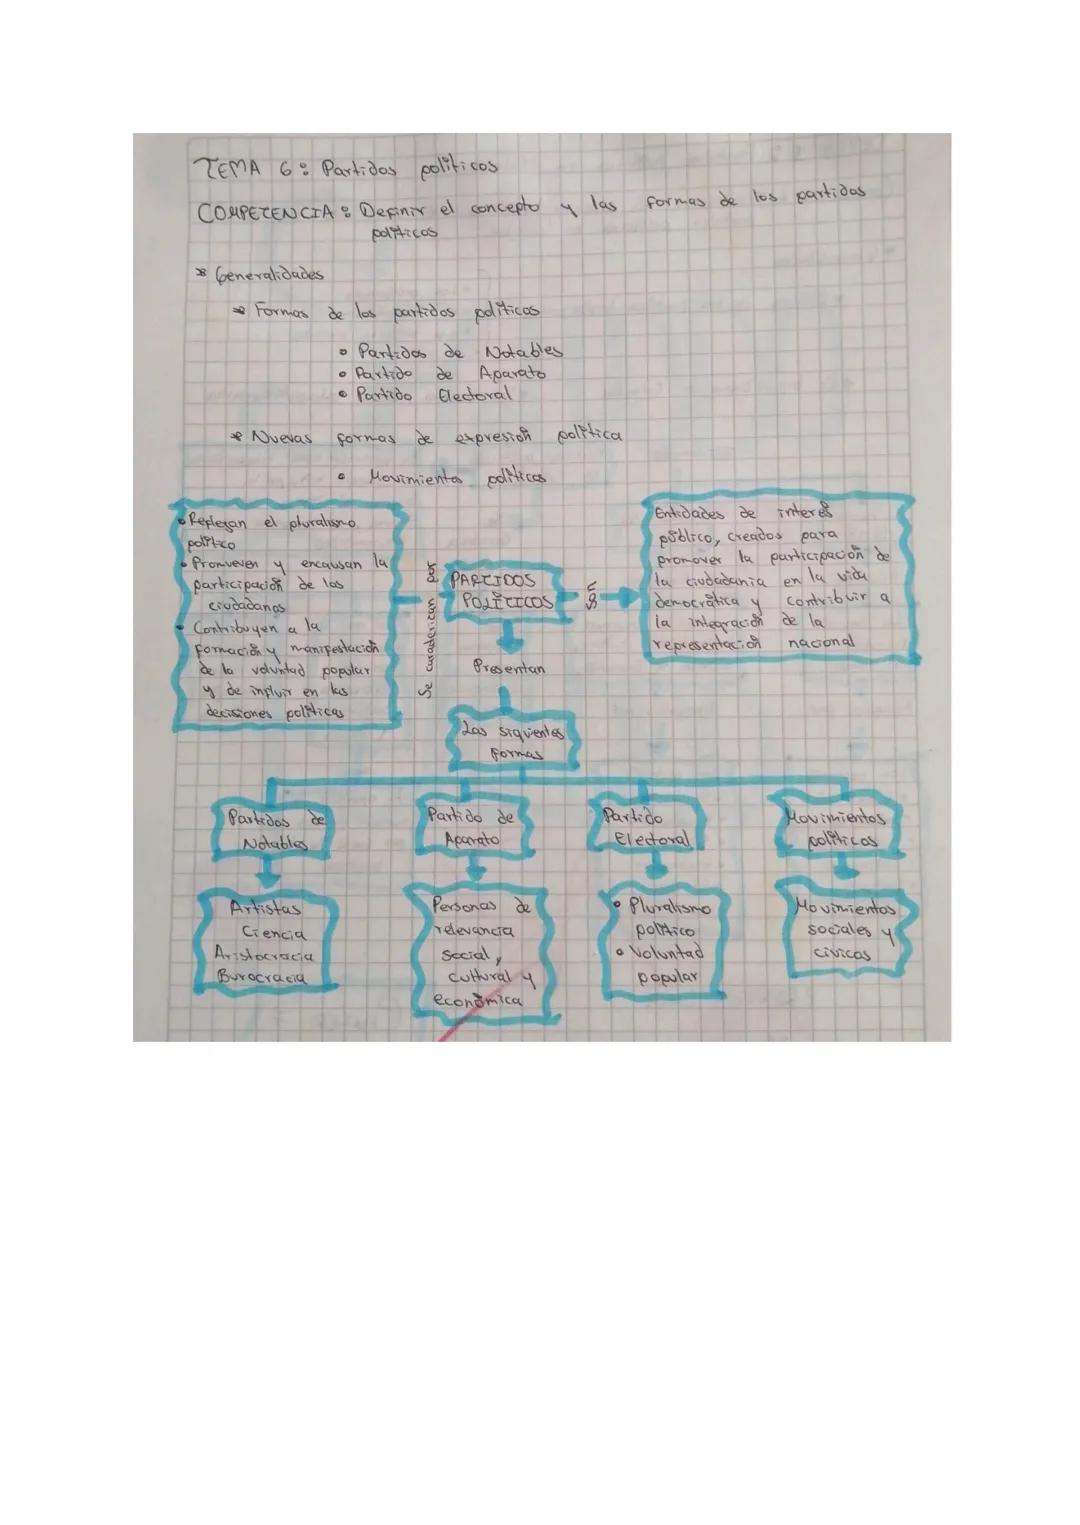 TEMA 6: Partidos políticos
COMPETENCIA: Definir el concepto y las formas de los partidos
políticos
* Generalidades
* Formas de los partidos políticos
• Partidos de Notables
• Partido de Aparato
• Partido Electoral
* Nuevas formas de expresión política
• Movimientos políticos
• Reflegan el pluralismo
político
• Promueven y encausan la
participación de los
ciudadanos
• Contribuyen a la
formación y manifestación
de la voluntad popular
y de influir en las
decisiones políticas
Se caracterican por
PARTIDOS
POLÍTICOS
son
Entidades de interés
público, creados para
promover la participación de
la ciudadanía en la vida
democrática y contribuir a
la integración de la
representación nacional
Presentan
Las siguientes
formas
Partidos de
Notables
Artistas
Ciencia
Aristocracia
Burocracia
Partido de
Aparato
Personas de
relevancia
social,
cultural y
económica
Partido
Electoral
• Pluralismo
político
• Voluntad
popular
Movimientos
políticos
Movimientos
sociales y
cívicos